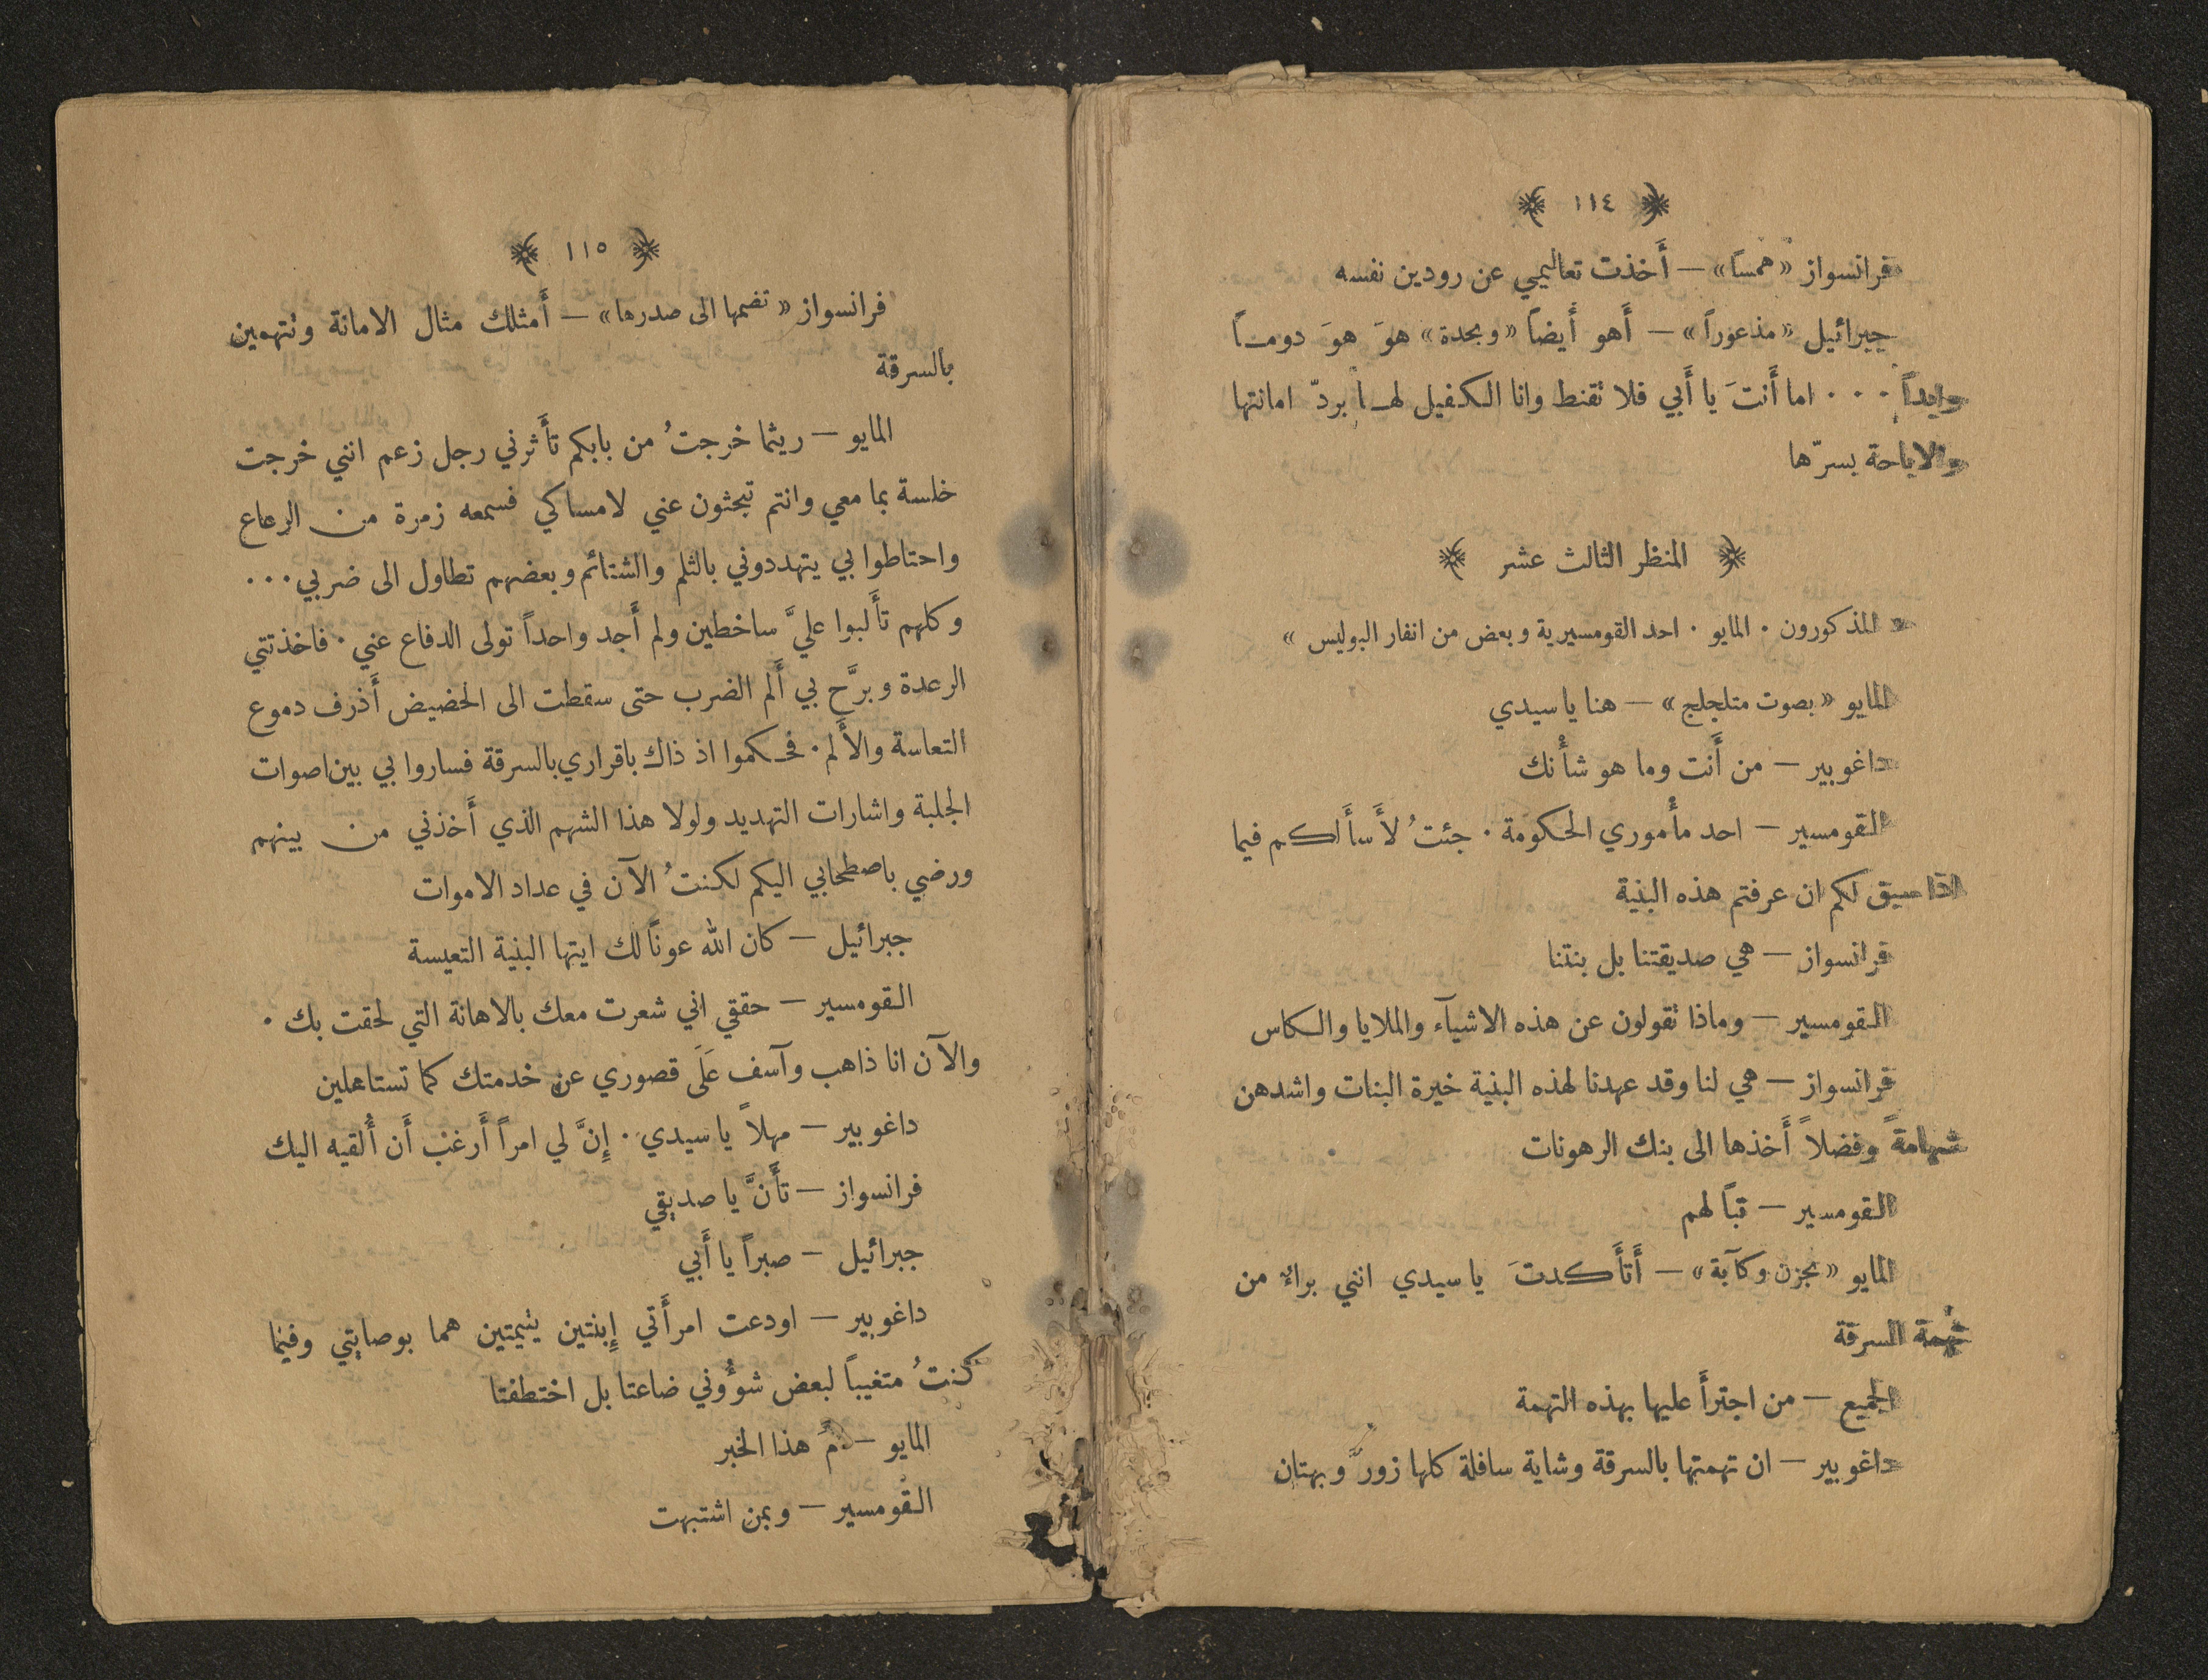 ١١٤
فرانسواز «همساً» — أَخذت تعاليمي عن رودين نفسه
جبرائيل «مذعوراً» — أَهو أَيضاً «وبحدة» هوَ هوَ دومـاً
وابداً ... اما أَنتَ يا أَبي فلا نقنط وانا الكفيل لهـا بردّ امانتها
والاباحة بسرّها
المنظر الثالث عشر
« المذكورون . المايو . احد القومسيرية وبعض من انفار البوليس »
المايو «بصوت متلجلج» — هنا ياسيدي
داغوبير — من أَنت وما هو شأْنك
القومسير — احد مأْموري الحكومة . جئتُ لأَسأَلكم فيما
اذا سبق لكم ان عرفتم هذه البنية
فرانسواز — هي صديقتنا بل بنتنا
القومسير — وماذا نقولون عن هذه الاشيآء والملايا والكاس
فرانسواز — هي لنا وقد عهدنا لهذه البنية خيرة البنات واشدهن
شهامةً وفضلاً أَخذها الى بنك الرهونات
القومسير — تباً لهم
المايو «بحزن وكآبة» — أَتأَكدتَ ياسيدي انني براءٌ من
تُهمة السرقة
الجميع — من اجترأَ عليها بهذه التهمة
داغوبير — ان تهمتها بالسرقة وشاية سافلة كلها زورٌ وبهتان
١١٥
فرانسواز «تضمها الى صدرها» — أَمثلك مثال الامانة ونتهمين
بالسرقة
المايو — ريثما خرجتُ من بابكم تأَثرني رجل زعم انني خرجت
خلسة بما معي وانتم تبحثون عني لامساكي فسمعه زمرة من الرعاع
واحتاطوا بي يتهددوني بالثلم والشتائم وبعضهم تطاول الى ضربي...
وكلهم تأَلبوا عليَّ ساخطين ولم أَجد واحداً تولى الدفاع عني . فاخذتني
الرعدة وبرَّح بي أَلم الضرب حتى سقطت الى الحضيض أَذرف دموع
التعاسة والأَلم . فحكموا اذ ذاك باقراري بالسرقة فساروا بي بين اصوات
الجلبة واشارات التهديد ولولا هذا الشهم الذي أَخذني من بينهم
ورضي باصطحابي اليكم لكنتُ الآن في عداد الاموات
جبرائيل — كان الله عوناً لك ايتها البنية التعيسة
القومسير — حققي اني شعرت معك بالاهانة التي لحقت بك .
والآن انا ذاهب وآسف عَلَى قصوري عن خدمتك كما تستاهلين
داغوبير — مهلاً ياسيدي . إِنَّ لي امراً أَرغب أَن أُلقيه اليك
فرانسواز — تأَنَّ يا صديقي
جبرائيل — صبراً يا أَبي
داغوبير — اودعت امرأَتي إِبنتين يتيمتين هما بوصايتي وفيما
كنتُ متغيباً لبعض شوُّوني ضاعتا بل اختطفتا
المايو — هذا الخبر
القومسير — وبمن اشتبهت